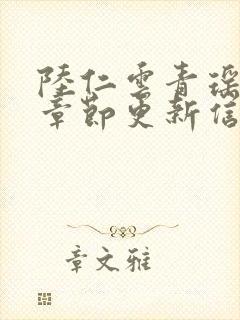 陸仁雲青瑶
章節更新信
章文雅